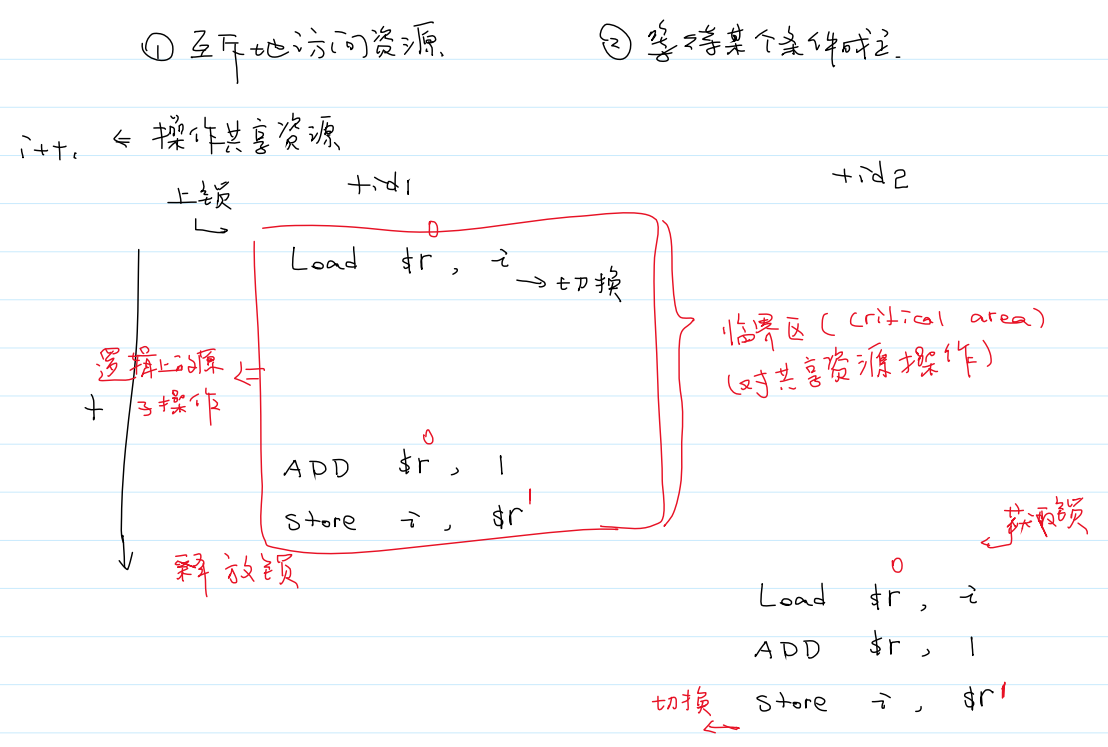 ① 互斥地访问资源.
② 等待某个条件成立.
i++, ⇐ 操作共享资源
上锁
tid1
tid2
0
Load $r, i
→切换
临界区 (critical area)
(对共享资源操作)
逻辑上的原
子操作
t
0
ADD $r, 1
1
store i, $r
释放锁
获取锁
0
Load $r, i
ADD $r, 1
切换
store i, $r 1